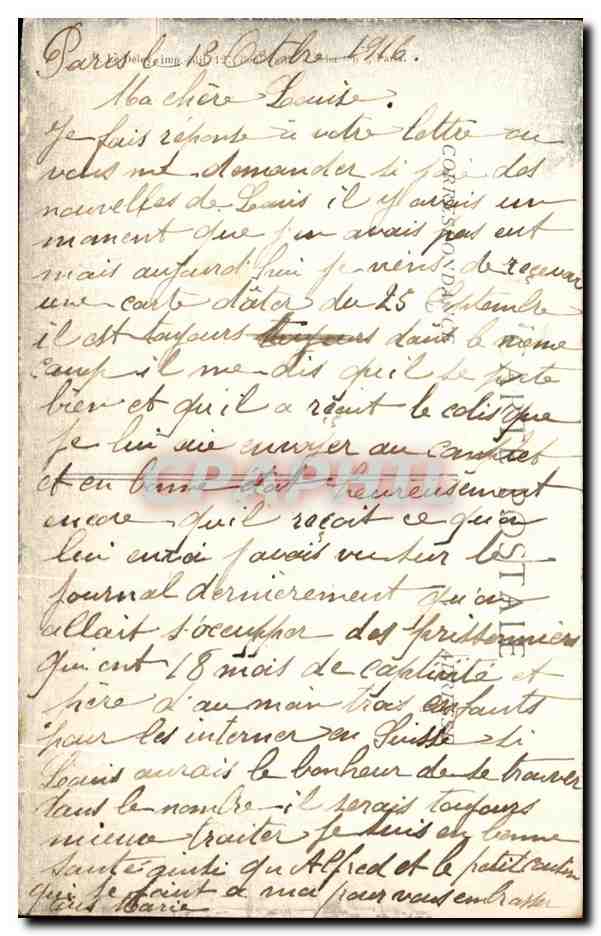 Paris le 18 Octbre 1916.
Ma chère Louise.
Je fais réponse à votre lettre ou
vous me demander si j'aie des
nouvelles de Louis il y avais un
moment que j'en avais pas eut
mais aujourd'hui je viens de reçevoir
une carte dâter du 25 Septembre
il est toujours toujours dans le même
camp il me dis qu'il se porte
bien et qu'il a reçut le colis que
je lui aie envoyer au complet
et en bonne état heureusement
encore qu'il reçoit ce qu'on
lui envoi j'avais vu sur le
journal dernièrement qu'on
allait s'occupper des prissonniers
qui ont 18 mois de captivité et
père d'au moin trois enfants
pour les interner en Suisse si
Louis aurais le bonheur de se trouver
dans le nombre il serais toujours
mieux traiter je suis en bonne
santé ainsi qu'Alfred et le petit cousin
qui se joint a moi pour vous embrasser
tous Marie
CORRESPONDANCE
CARTE POSTALE
ADRESSE
CPAPHIL